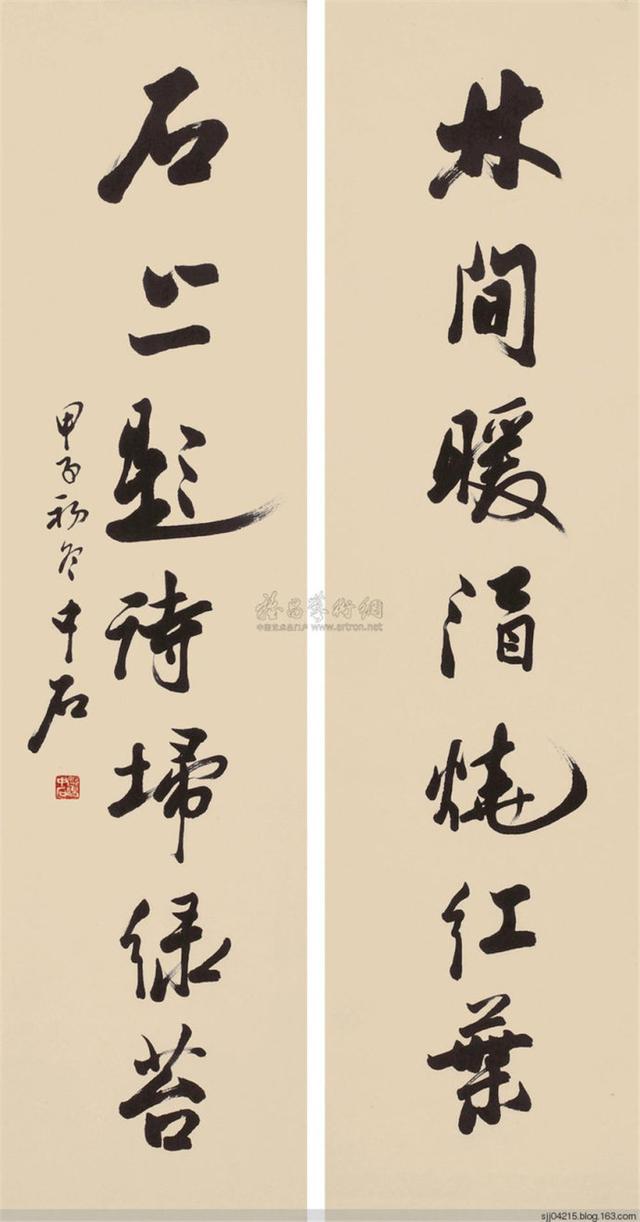 林間暖酒燒紅葉
石上題詩埽綠苔
甲子初冬中石
雅昌藝術網
中国艺术品门户 www.artron.net
sjj04215.blog.163.com